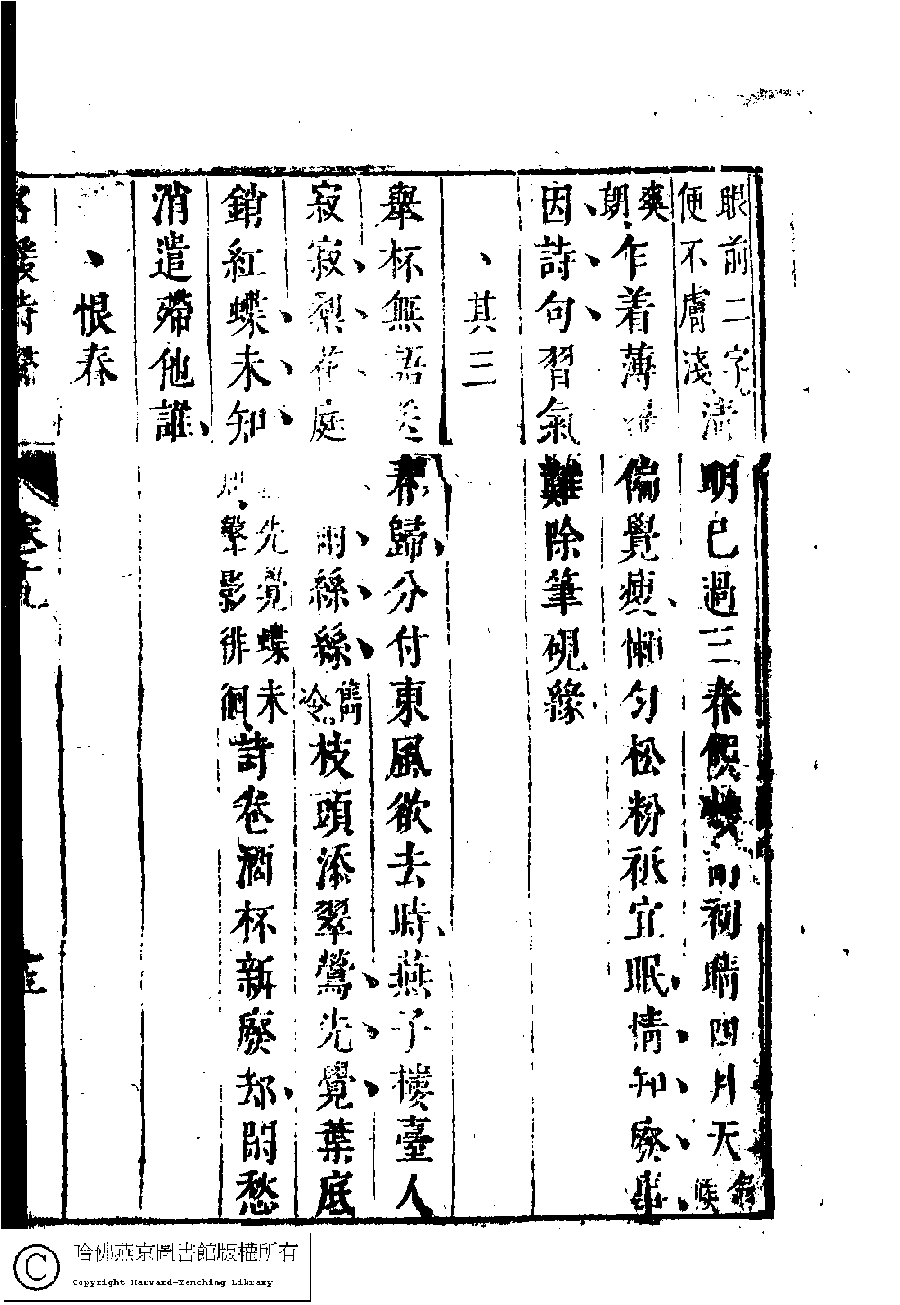 眼前二字
便不膚淺
清明已過三春候幾□初晴四月天
爽
朗
乍着薄□偏覺瘦懶勻松粉祇宜眠情知廢事
因詩句習氣難除筆硯緣
其三
舉杯無語□春歸分付東風欲去時燕子樓臺人
寂寂梨花庭□雨絲絲
雋
冷
枝頭添翠鶯先覺葉底
銷紅蝶未知
先覺蝶未
影徘徊
詩卷酒杯新廢却閒愁
消遣殢他誰
恨春
哈佛燕京圖書館版權所有
Copyright Harvard-Yenching Library